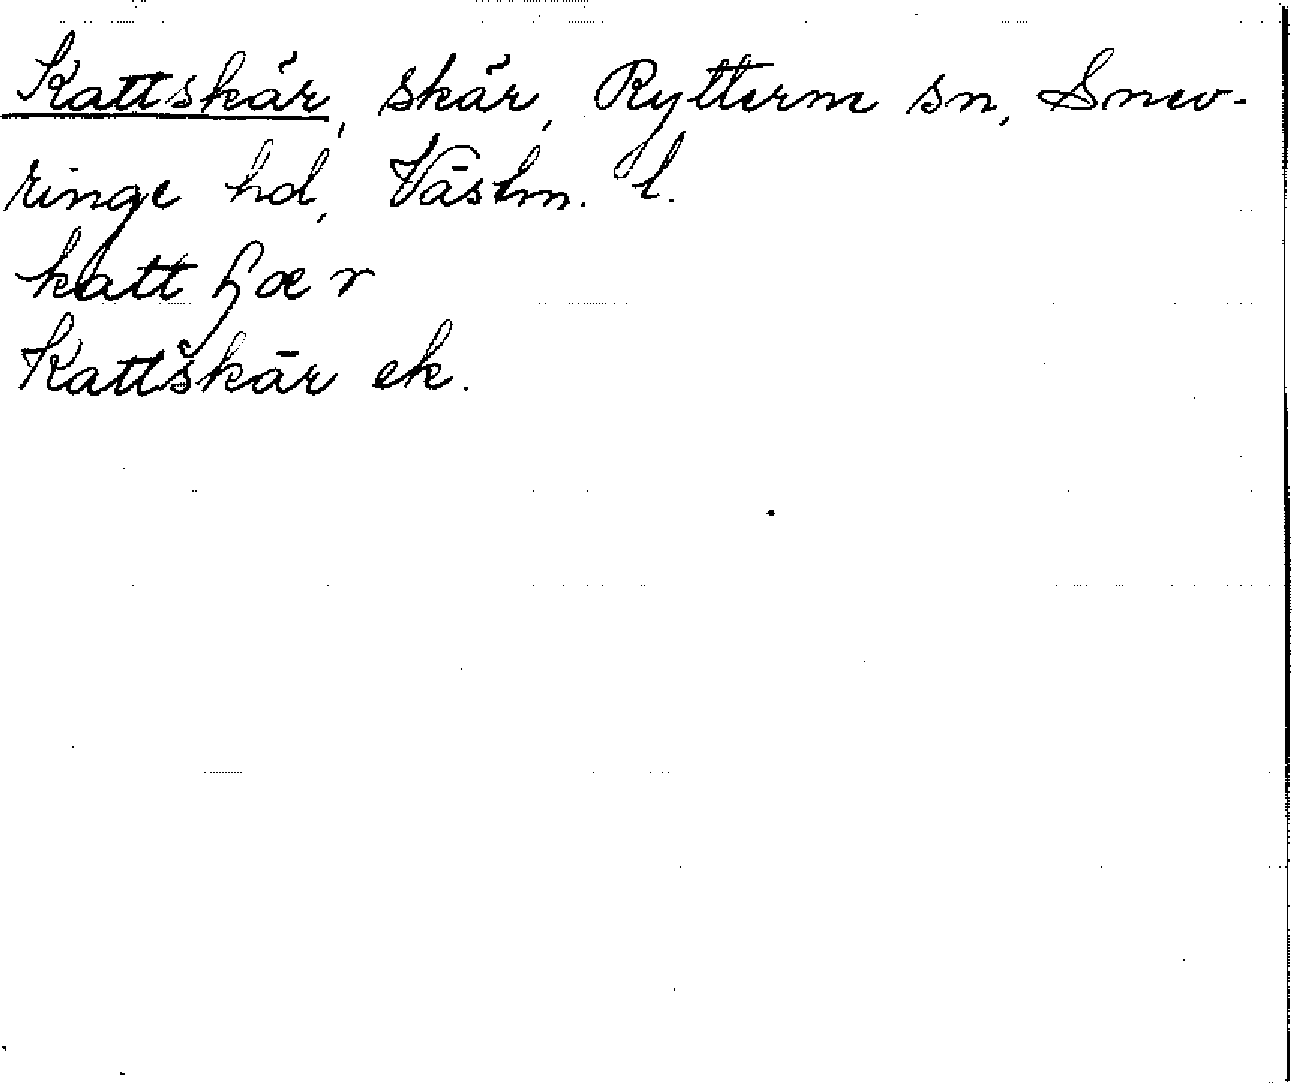 Kattskär, skär, Rytterne sn, Snev-
ringe hd, Västm. l.
katt ɧær
Kattskär ek.